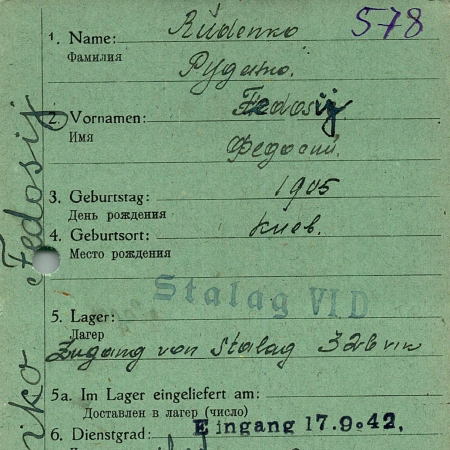 578
1. Name: Rudenko
Фамилия
Руденко.
2. Vornamen: Fedosij
Имя
Федосий.
3. Geburtstag: 1905
День рождения
4. Geburtsort: Киев.
Место рождения
Stalag VI D
5. Lager:
Лагер
Zugang von Stalag 326 VI K
5a. Im Lager eingeliefert am:
Доставлен в лагер (число)
Eingang 17.9.42.
6. Dienstgrad:
Fedosij